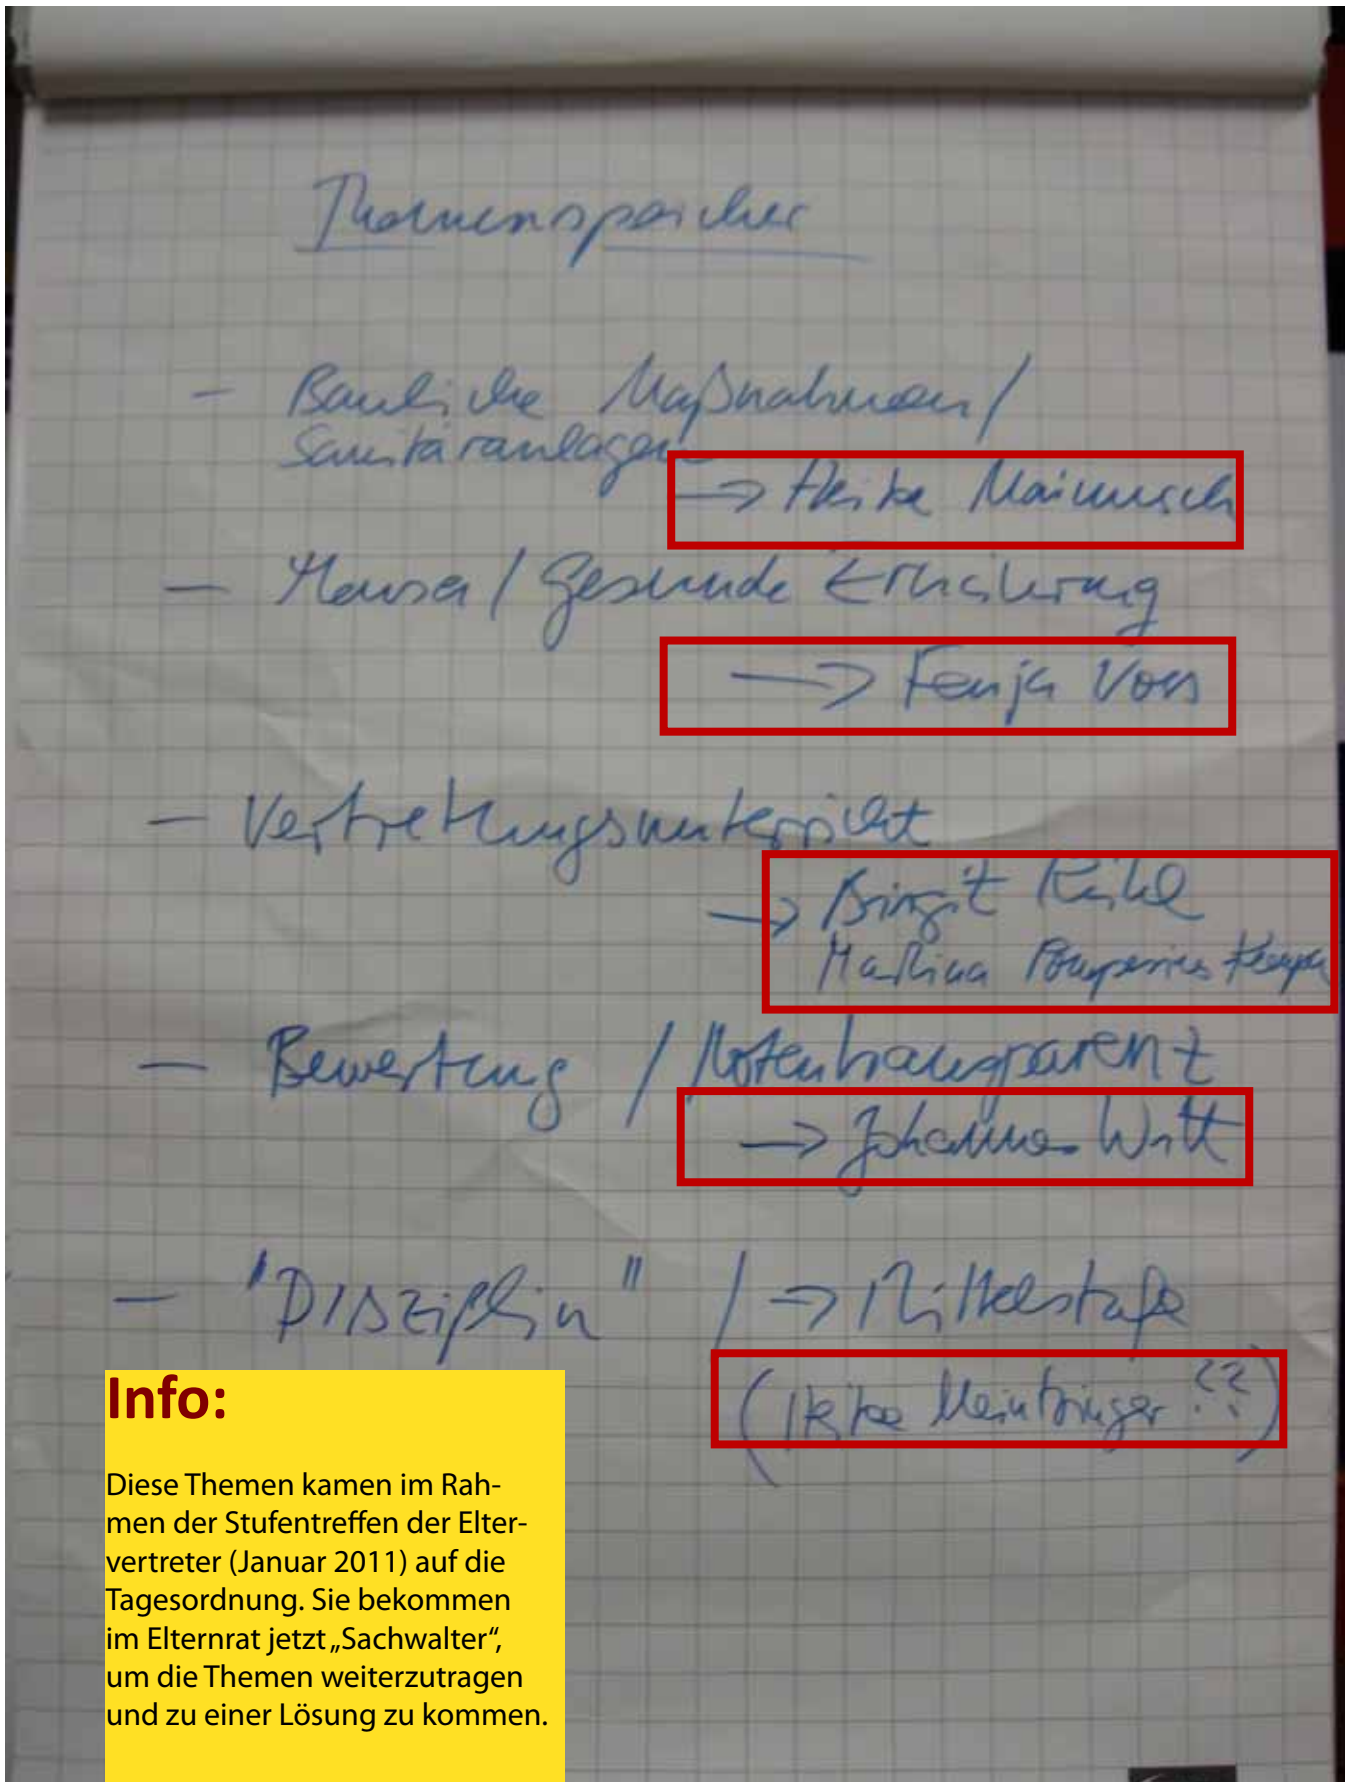 Themenspeicher
- Bauliche Maßnahmen/
Sanitäranlagen
→ Heike
- Mensa / Gesunde Ernährung
→ Fenja Voss
- Vertretungsunterricht
→ Birgit
Martina
- Bewertung / Notentransparenz
→ Johannes Witt
- "Disziplin" / → Mittelstufe
(Heike ??)
Info:
Diese Themen kamen im Rah-
men der Stufentreffen der Elter-
vertreter (Januar 2011) auf die
Tagesordnung. Sie bekommen
im Elternrat jetzt „Sachwalter“,
um die Themen weiterzutragen
und zu einer Lösung zu kommen.